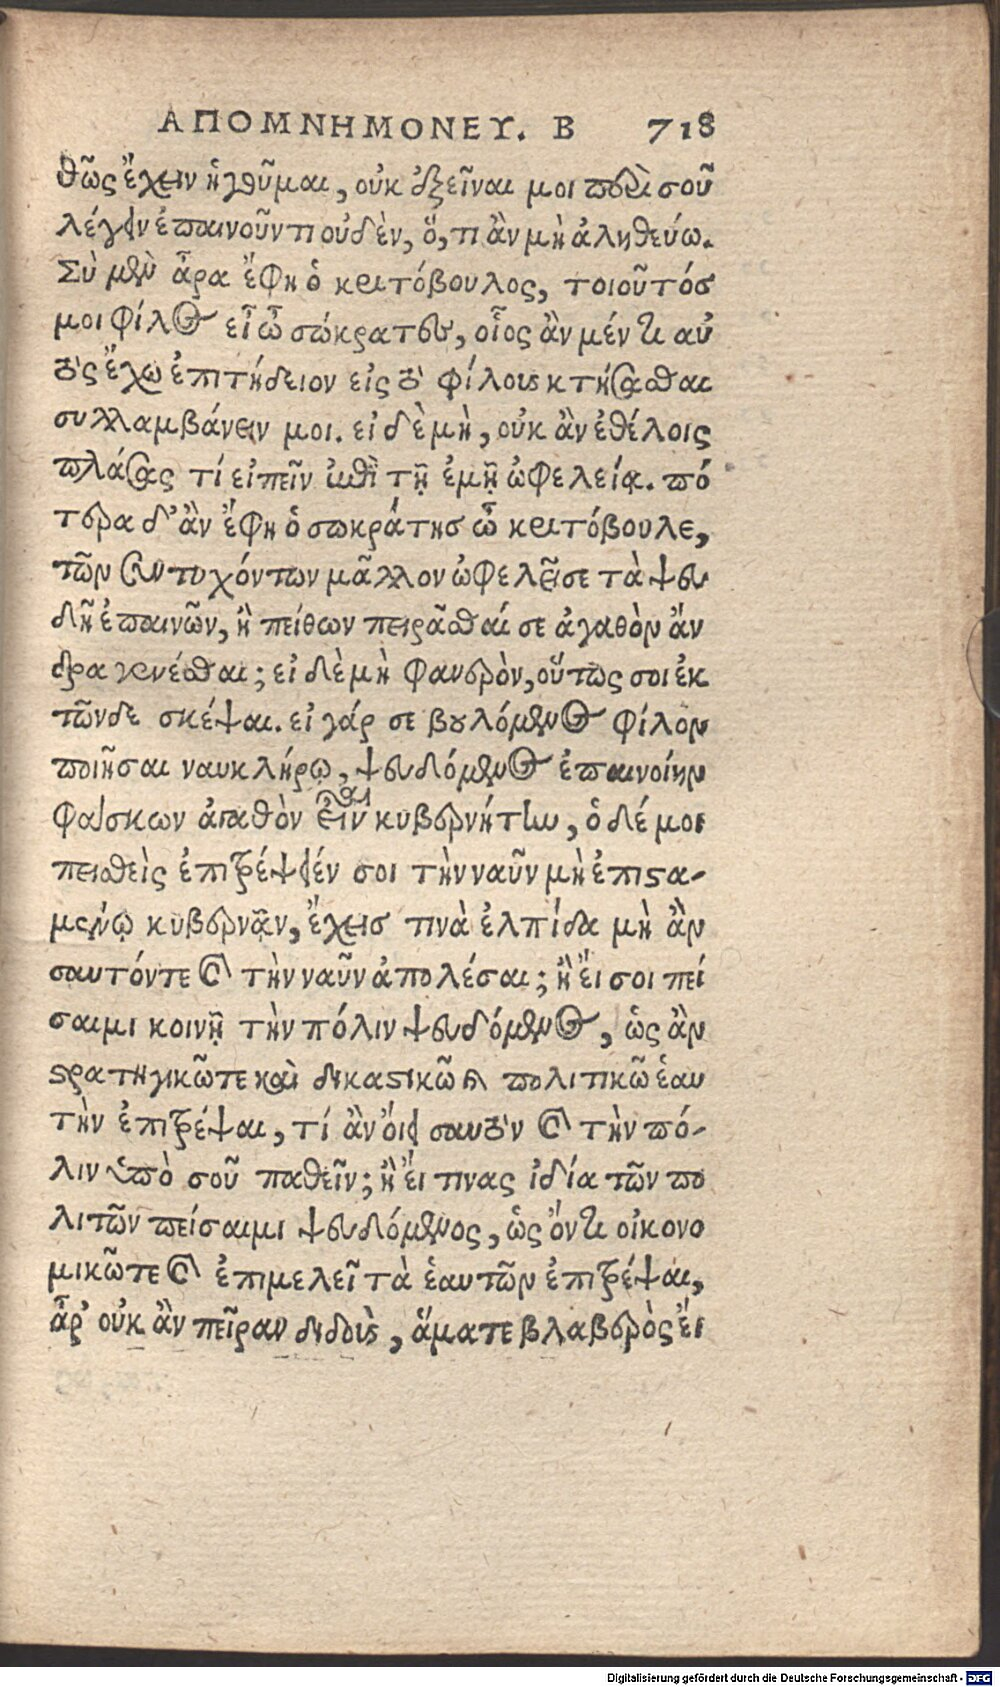 ΑΠΟΜΝΗΜΟΝΕΥ. Β 718
θῶς ἔχειν ἡγοῦμαι, οὐκ ἐξεῖναι μοι περὶ σοῦ
λέγειν ἐπαινοῦντι οὐδὲν, ὅ,τι ἂν μὴ ἀληθεύω.
Σὺ μὲν ἄρα ἔφη ὁ κριτόβουλος, τοιοῦτόσ
μοι φίλος εἶ ὦ σώκρατες, οἷος ἂν μέν τι αὐ
τὸς ἔχω ἐπιτήδειον εἰς τὸ φίλους κτήσασθαι
συλλαμβάνειν μοι. εἰ δὲ μὴ, οὐκ ἂν ἐθέλοις
πλάσας τί εἰπεῖν ἐπὶ τῇ ἐμῇ ὠφελείᾳ. πό
τερα δ' ἂν ἔφη ὁ σωκράτησ ὦ κριτόβουλε,
τῶν συντυχόντων μᾶλλον ὠφελεῖσε τὰ ψευ
δῆ ἐπαινῶν, ἢ πείθων πειρᾶσθαί σε ἀγαθὸν ἄν
δρα γενέσθαι; εἰ δὲ μὴ φανερὸν, οὕτως σοι ἐκ
τῶνδε σκέψαι. εἰ γάρ σε βουλόμενος φίλον
ποιῆσαι ναυκλήρῳ, ψευδόμενος ἐπαινοίην
φάσκων ἀγαθὸν εἶναι κυβερνήτην, ὁ δέ μοι
πεισθεὶς ἐπιτρέψειέν σοι τὴν ναῦν μὴ ἐπιστα-
μένῳ κυβερνᾷν, ἔχεισ τινὰ ἐλπίδα μὴ ἂν
σαυτόντε καὶ τὴν ναῦν ἀπολέσαι; ἢ ἔι σοι πεί
σαιμι κοινῇ τὴν πόλιν ψευδόμενος, ὡς ἂν
στρατηγικῶτε καὶ δικαστικῶ καὶ πολιτικῶ ἑαυ
τὴν ἐπιτρέψαι, τί ἂν ὄιει σαυτὸν καὶ τὴν πό-
λιν ὑπὸ σοῦ παθεῖν; ἢ ἔι τινας ἰδία τῶν πο
λιτῶν πείσαιμι ψευδόμενος, ὡς ὄντι οἰκονο
μικῶτε καὶ ἐπιμελεῖ τὰ ἑαυτῶν ἐπιτρέψαι,
ἆρ' οὐκ ἂν πεῖραν διδοὺς, ἅματε βλαβερὸς ἔι